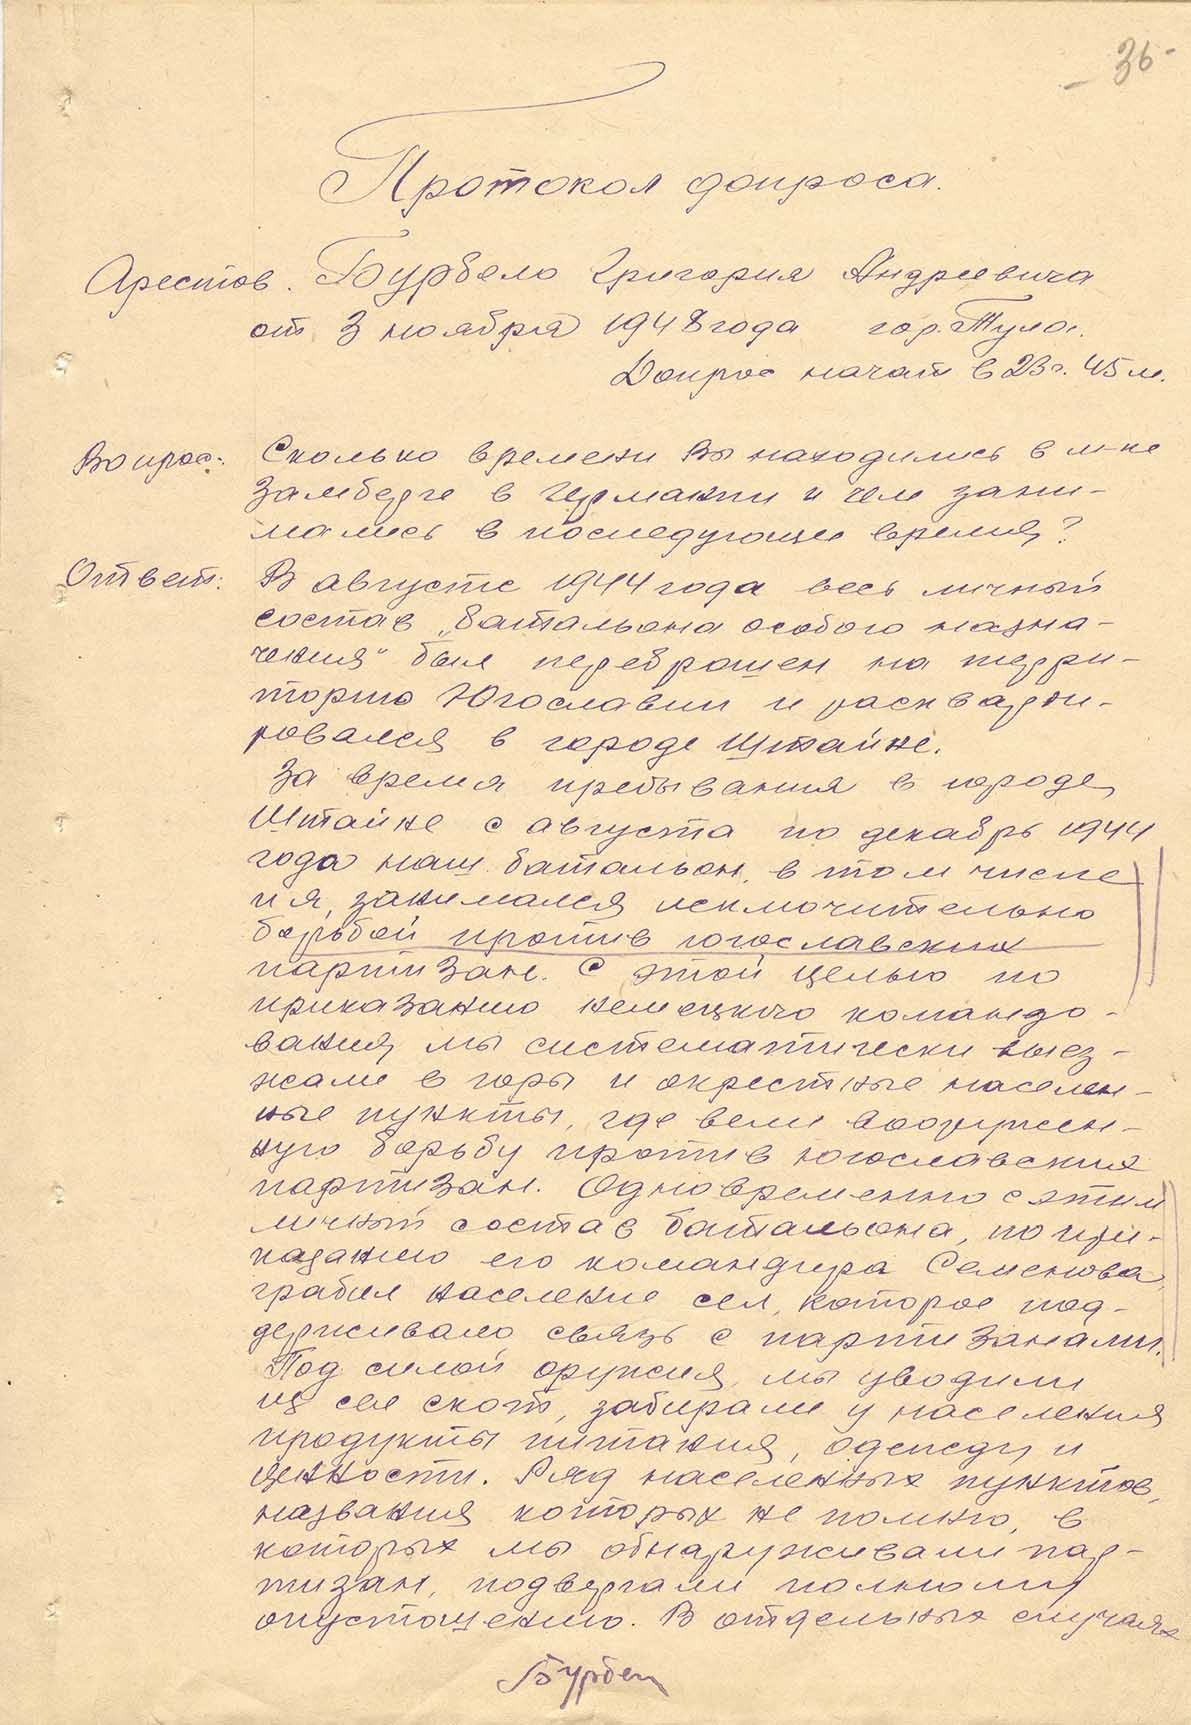 36
Протокол допроса.
Арестов. Бурбело Григория Андреевича
от 3 ноября 1948 года гор. Тула.
Допрос начат в 23 ч. 45 м.
Вопрос: Сколько времени Вы находились в м-ке
Замберге в Германии и чем зани-
мались в последующее время?
Ответ: В августе 1944 года весь личный
состав „батальона особого назна-
чения“ был переброшен на терри-
торию Югославии и расквартировался
ровался в городе Штайне.
За время пребывания в городе
Штайне с августа по декабрь 1944
года наш батальон, в том числе
и я, занимался исключительно
борьбой против югославских
партизан. С этой целью по
приказанию немецкого командо-
вания мы систематически выез-
жали в горы и окрестные населен-
ные пункты, где вели вооружен-
ную борьбу против югославских
партизан. Одновременно с этим
личный состав батальона, по при-
казанию его командира Семенова,
грабил население сел, которое под-
держивало связь с партизанами.
Под силой оружия мы уводили
из сел скот, забирали у населения
продукты питания, одежду и
ценности. Ряд населенных пунктов,
названия которых не помню, в
которых мы обнаруживали пар-
тизан, подвергали полному
опустошению. В отдельных случаях
Бурбел